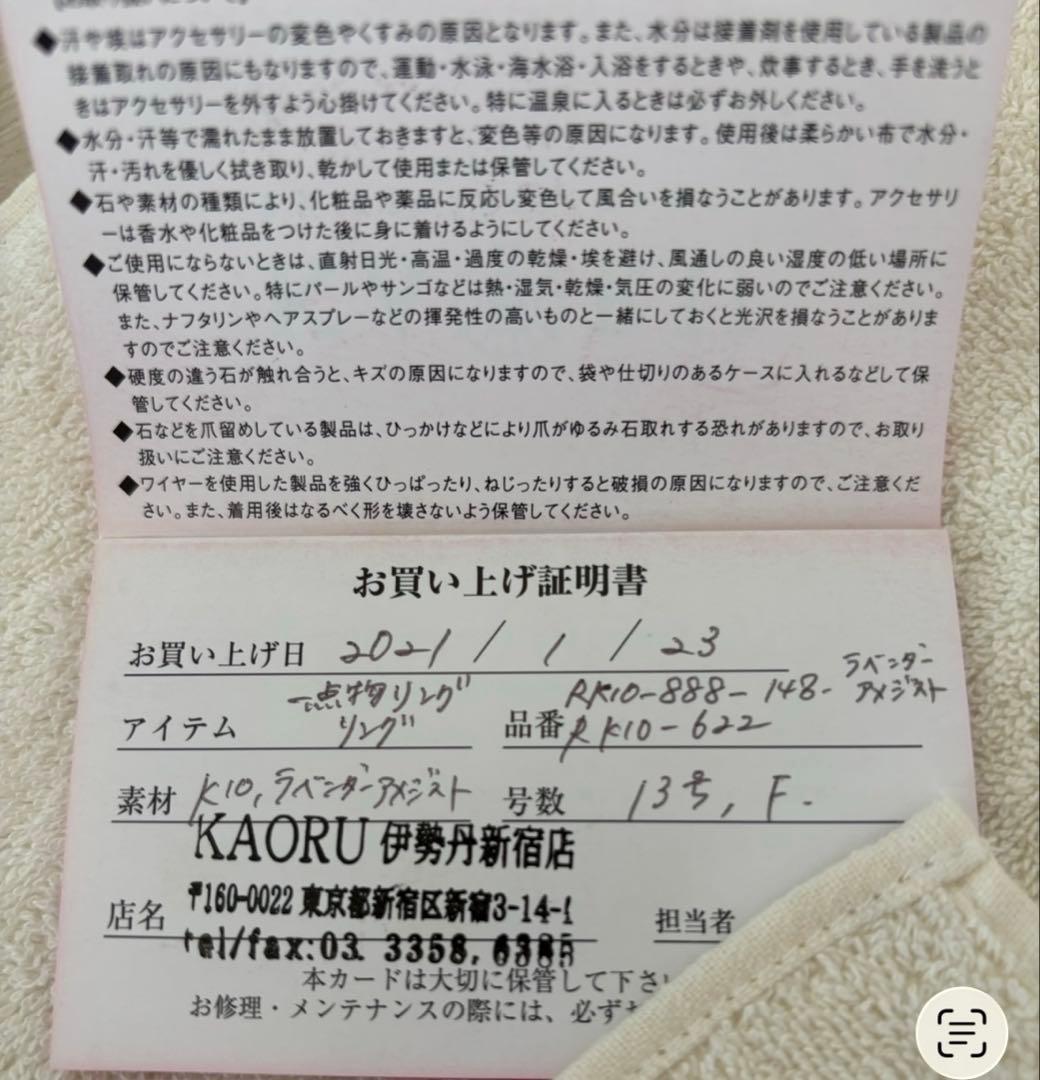 ◆汗や埃はアクセサリーの変色やくすみの原因となります。また、水分は接着剤を使用している製品の
接着取れの原因にもなりますので、運動・水泳・海水浴・入浴をするときや、炊事するとき、手を洗うと
きはアクセサリーを外すよう心掛けてください。特に温泉に入るときは必ずお外しください。
◆水分・汗等で濡れたまま放置しておきますと、変色等の原因になります。使用後は柔らかい布で水分・
汗・汚れを優しく拭き取り、乾かして使用または保管してください。
◆石や素材の種類により、化粧品や薬品に反応し変色して風合いを損なうことがあります。アクセサリ
ーは香水や化粧品をつけた後に身に着けるようにしてください。
◆ご使用にならないときは、直射日光・高温・過度の乾燥・埃を避け、風通しの良い湿度の低い場所に
保管してください。特にパールやサンゴなどは熱・湿気・乾燥・気圧の変化に弱いのでご注意ください。
また、ナフタリンやヘアスプレーなどの揮発性の高いものと一緒にしておくと光沢を損なうことがありま
すのでご注意ください。
◆硬度の違う石が触れ合うと、キズの原因になりますので、袋や仕切りのあるケースに入れるなどして保
管してください。
◆石などを爪留めしている製品は、ひっかけなどにより爪がゆるみ石取れする恐れがありますので、お取り
扱いにご注意ください。
◆ワイヤーを使用した製品を強くひっぱったり、ねじったりすると破損の原因になりますので、ご注意くだ
さい。また、着用後はなるべく形を壊さないよう保管してください。
お買い上げ証明書
お買い上げ日 2021 / 1 / 23
一点物リング RK10-888-148- ラベンダーアメジスト
アイテム リング 品番 RK10-622
素材 K10, ラベンダーアメジスト 号数 13号, F.
KAORU 伊勢丹新宿店
〒160-0022 東京都新宿区新宿3-14-1
店名 担当者
tel/fax:03 3358, 6385
本カードは大切に保管して下さい
お修理・メンテナンスの際には、必ず